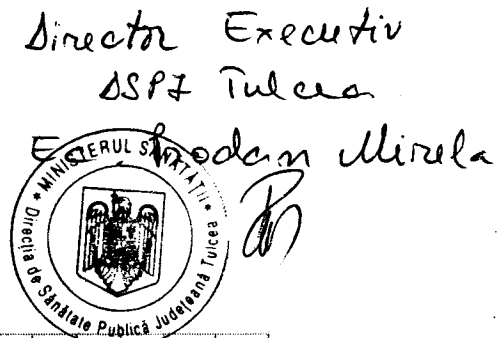 Director Executiv
DSPJ Tulcea
Ec. Mirela
MINISTERUL SĂNĂTĂȚII
Direcția de Sănătate Publică Județeană Tulcea